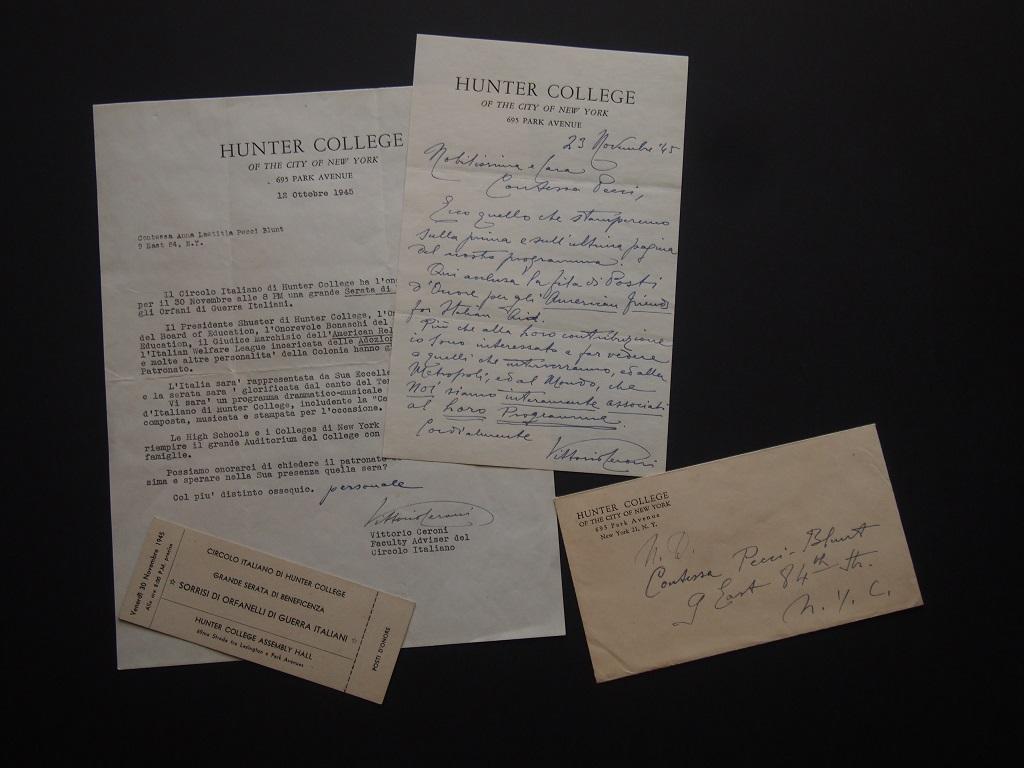 HUNTER COLLEGE
OF THE CITY OF NEW YORK
695 PARK AVENUE
12 Ottobre 1945
Contessa Anna Laetitia Pecci Blunt
9 East 84, N.Y.
Il Circolo Italiano di Hunter College ha l'ono
per il 30 Novembre alle 8 PM una grande Serata di
gli Orfani di Guerra Italiani.
Il Presidente Shuster di Hunter College, l'On
del Board of Education, l'Onorevole Bonaschi del
Education, il Giudice Marchisio dell'American Rel
l'Italian Welfare League incaricata delle Adozion
e molte altre personalita' della Colonia hanno gi
Patronato.
L'Italia sara' rappresentata da Sua Eccelle
e la serata sara' glorificata dal canto del Te
Vi sara' un programma drammatico-musicale
d'Italiano di Hunter College, includente la "Ca
composta, musicata e stampata per l'occasione.
Le High Schools e i Colleges di New York
riempire il grande Auditorium del College con
famiglie.
Possiamo onorarci di chiedere il patronato
sima e sperare nella Sua presenza quella sera?
Col piu' distinto ossequio. personale
Vittorio Ceroni
Vittorio Ceroni
Faculty Adviser del
Circolo Italiano
HUNTER COLLEGE
OF THE CITY OF NEW YORK
695 PARK AVENUE
23 Novembre '45
Nobilissima e Cara
Contessa Pecci,
Ecco quello che stamperemo
sulla prima e sull'ultima pagina
del nostro programma.
Qui acclusa la fila di Posti
d'Onore per gli American Friends
for Italian Aid.
Più che alla Loro contribuzione
io sono interessato a far vedere
a quelli che interverranno, ed alla
Metropoli, ed al Mondo, che
Noi siamo interamente associati
al Loro Programma.
Cordialmente
Vittorio Ceroni
HUNTER COLLEGE
OF THE CITY OF NEW YORK
695 Park Avenue
New York 21, N. Y.
N. D.
Contessa Pecci-Blunt
9 East 84th St.
N. Y. C.
Venerdì 30 Novembre 1945
Alle ore 8:00 P.M. precise
CIRCOLO ITALIANO DI HUNTER COLLEGE
GRANDE SERATA DI BENEFICENZA
☆ SORRISI DI ORFANELLI DI GUERRA ITALIANI ☆
HUNTER COLLEGE ASSEMBLY HALL
69ma Strada tra Lexington e Park Avenues
POSTI D'ONORE